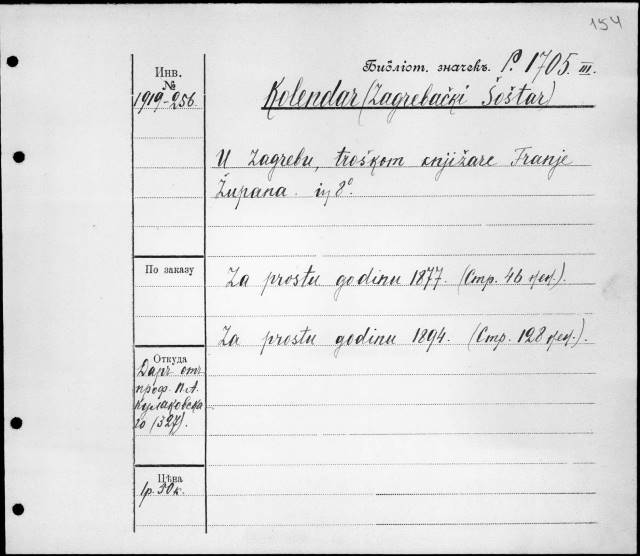 154
Библіот. значекъ. P. 1705. III.
Инв.
№
1919-256.
Kolendar (Zagrebački Šoštar)
U Zagrebu, troškom knjižare Franje
Župana. 8°.
По заказу
Za prostu godinu 1877. (Стр. 46
Za prostu godinu 1894. (Стр. 128
Откуда
Даръ отъ
проф. П.А.
Кулаковска
го (327).
Цѣна
1р. 50 к.